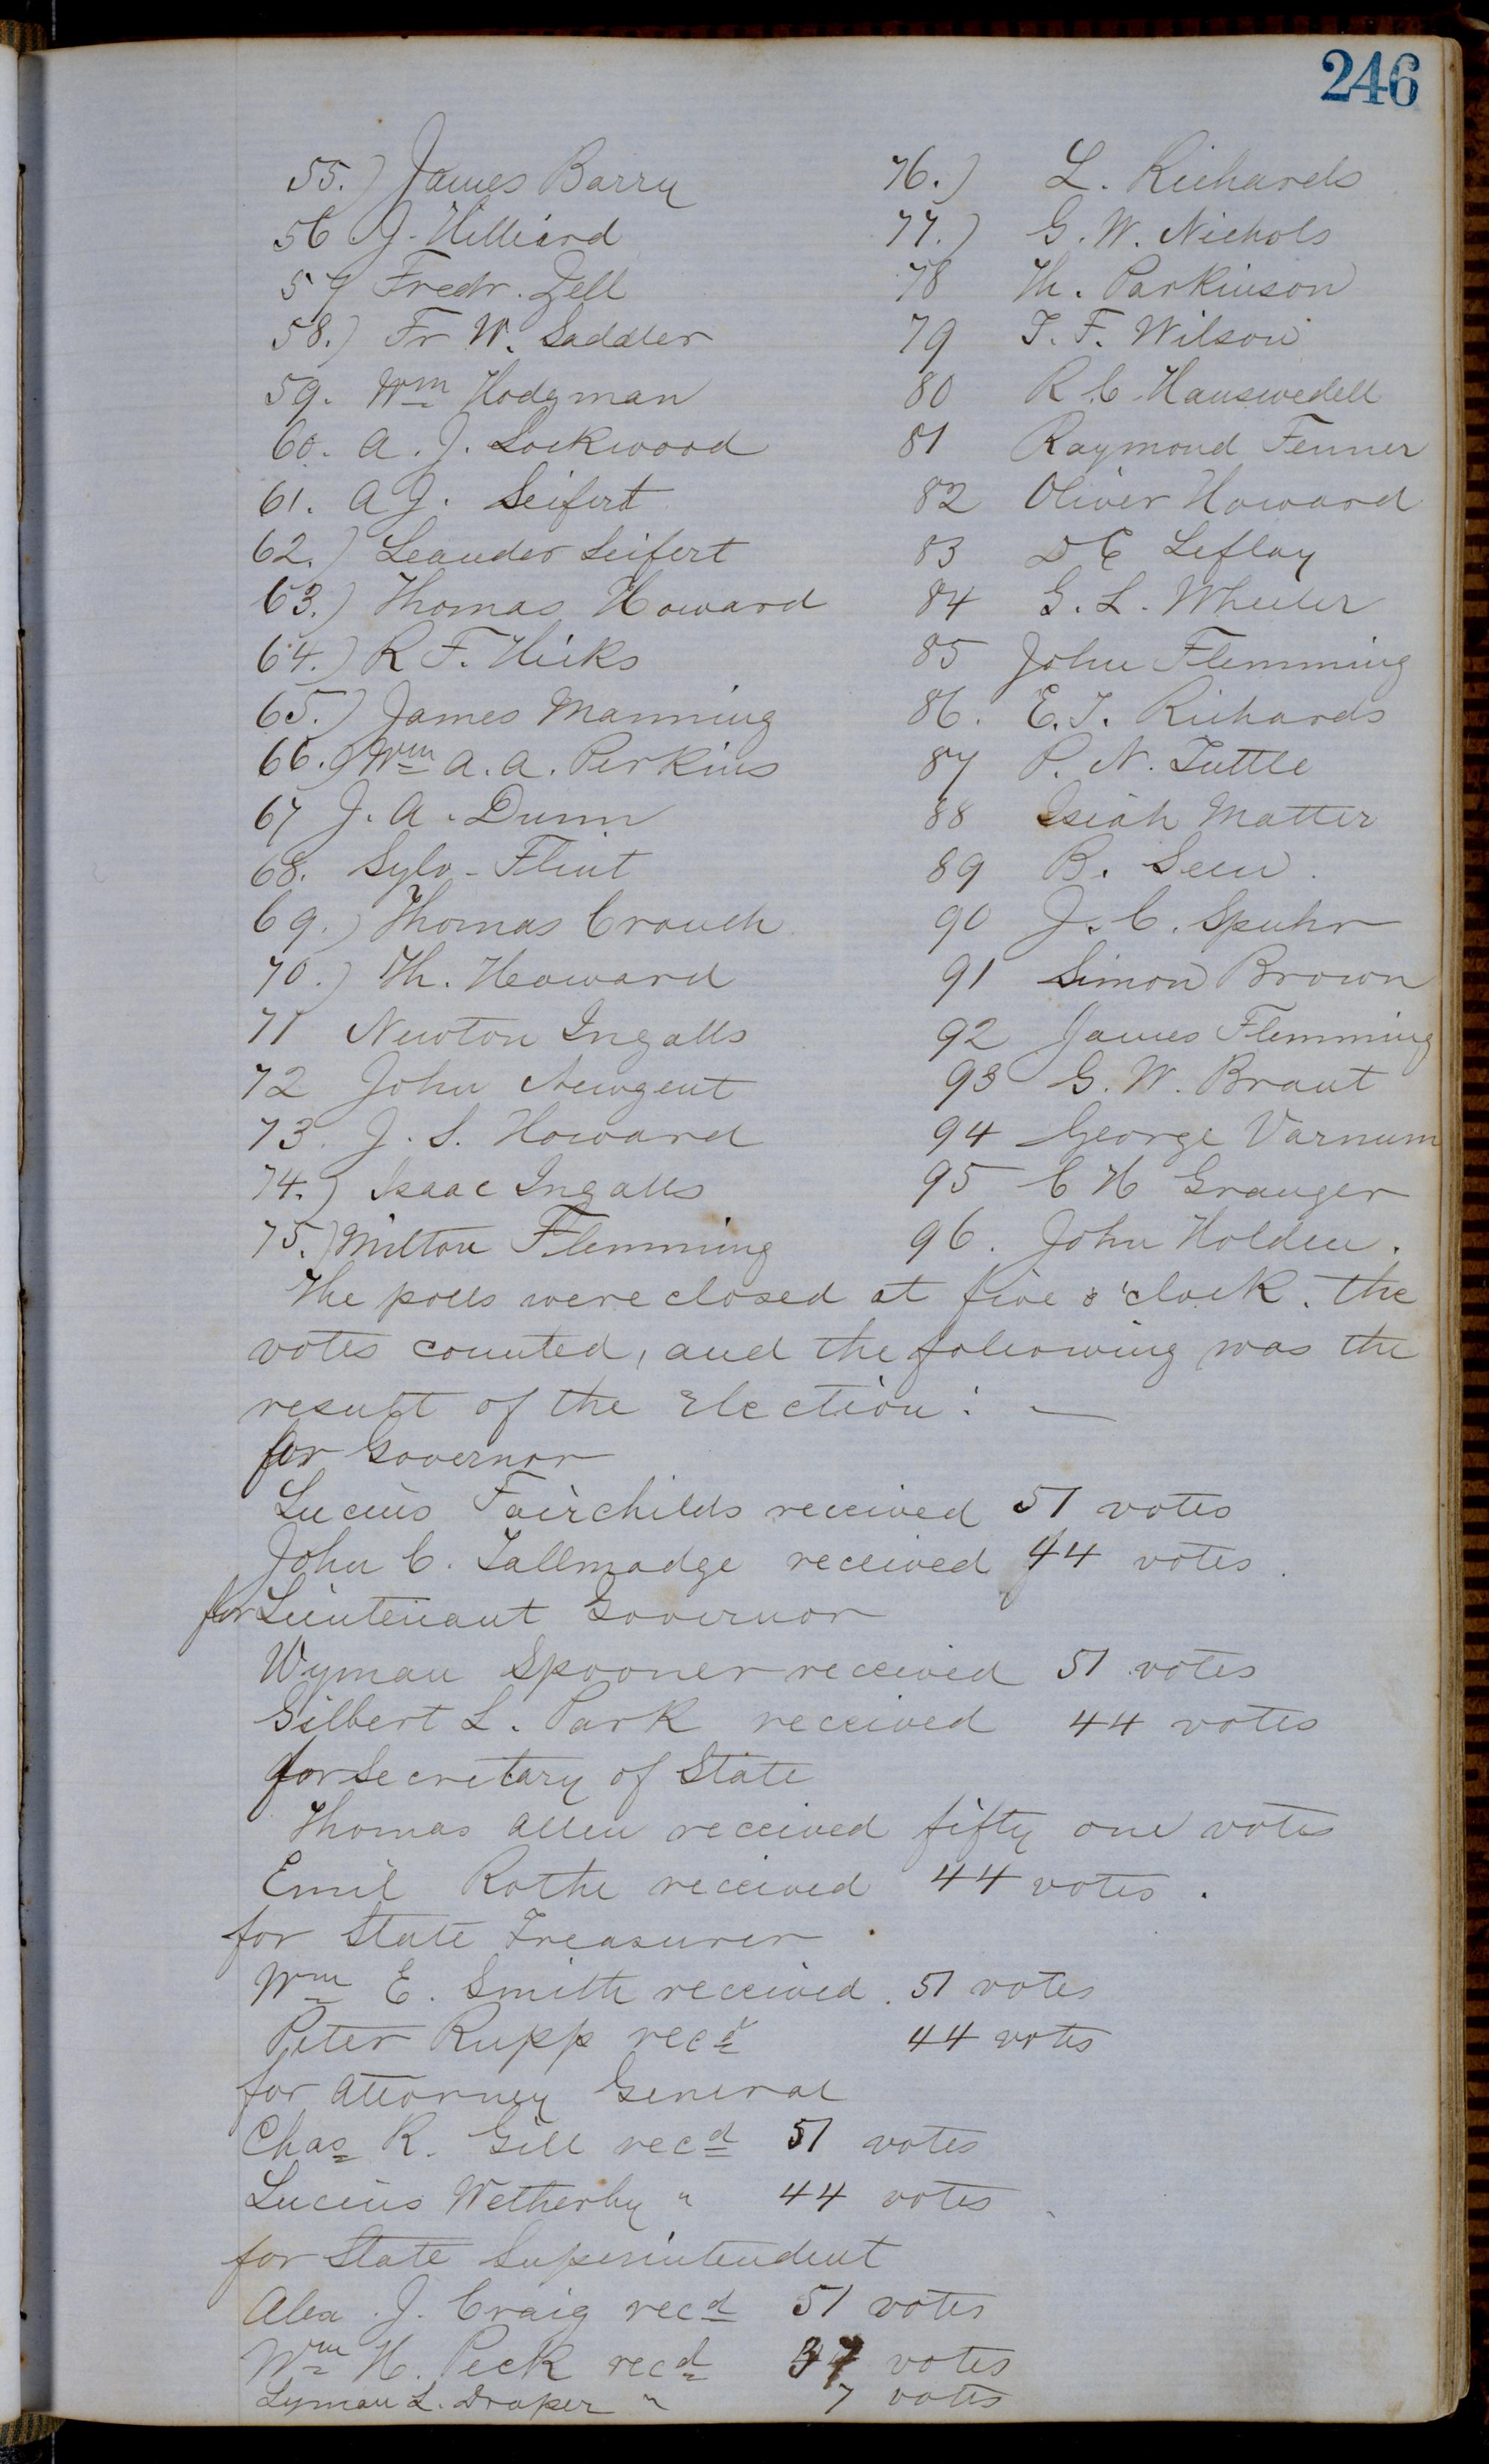 246
55.) James Barry
56 J. Hilliard
57 Fredr. Zell
58.) Fr W. Saddler
59. Wm Hodgman
60. A. J. Lockwood
61. A J. Seifert
62.) Leander Seifert
63.) Thomas Howard
64.) R F. Hicks
65.) James Manning
66.) Wm A. A. Perkins
67 J. A. Dunn
68. Sylv- Flint
69.) Thomas Crouch
70.) Th. Howard
71 Newton Ingalls
72 John Newgent
73. J. S. Howard
74.) Isaac Ingalls
75.) Milton Flemming
76.) L. Richards
77.) G. W. Nichols
78 Th. Parkinson
79 T. F. Wilson
80 R C Hauswedell
81 Raymond Fenner
82 Oliver Howard
83 D E Leflay
84 G. L. Wheeler
85 John Flemming
86. E. T. Richards
87 P. N. Tuttle
88 Isiah Matter
89 B. Seew.
90 J. C. Spuhr
91 Simon Brown
92 James Flemming
93 G. W. Braut
94 George Varnum
95 C H Granger
96. John Holden.
The polls were closed at five o'clock. the
votes counted, and the following was the
result of the Election: —
for Governor
Lucius Fairchilds received 51 votes
John C. Tallmadge received 44 votes.
for Lieutenant Governor
Wyman Spooner received 51 votes
Gilbert L. Park received 44 votes
for Secretary of State
Thomas Allen received fifty one votes
Emil Rothe received 44 votes.
for State Treasurer
Wm E. Smith received. 51 votes
Peter Rupp recd 44 votes
for Attorney General
Chas R. Gill recd 51 votes
Lucius Wetherby " 44 votes
for State Superintendent
Alex. J. Craig recd 51 votes
Wm H. Peck recd 37 votes
Lyman L. Draper " 7 votes